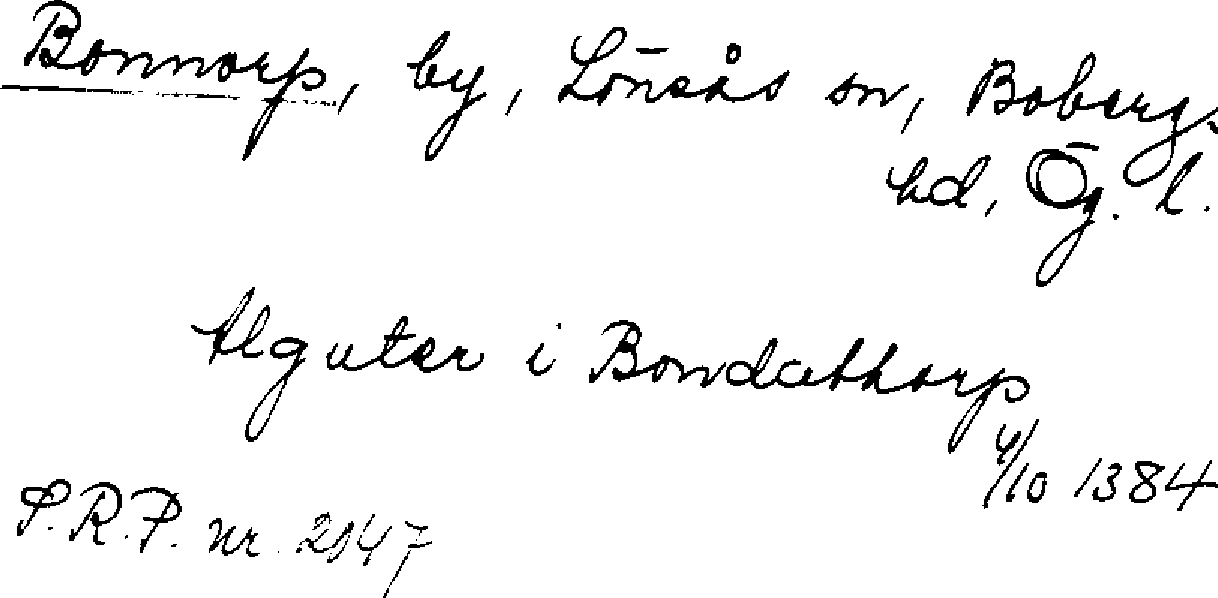 Bonnorp, by, Lönsås sn, Bobergs
hd, Ög. l.
Alguter i Bondathorp
4/10 1384
S.R.P. nr. 2147